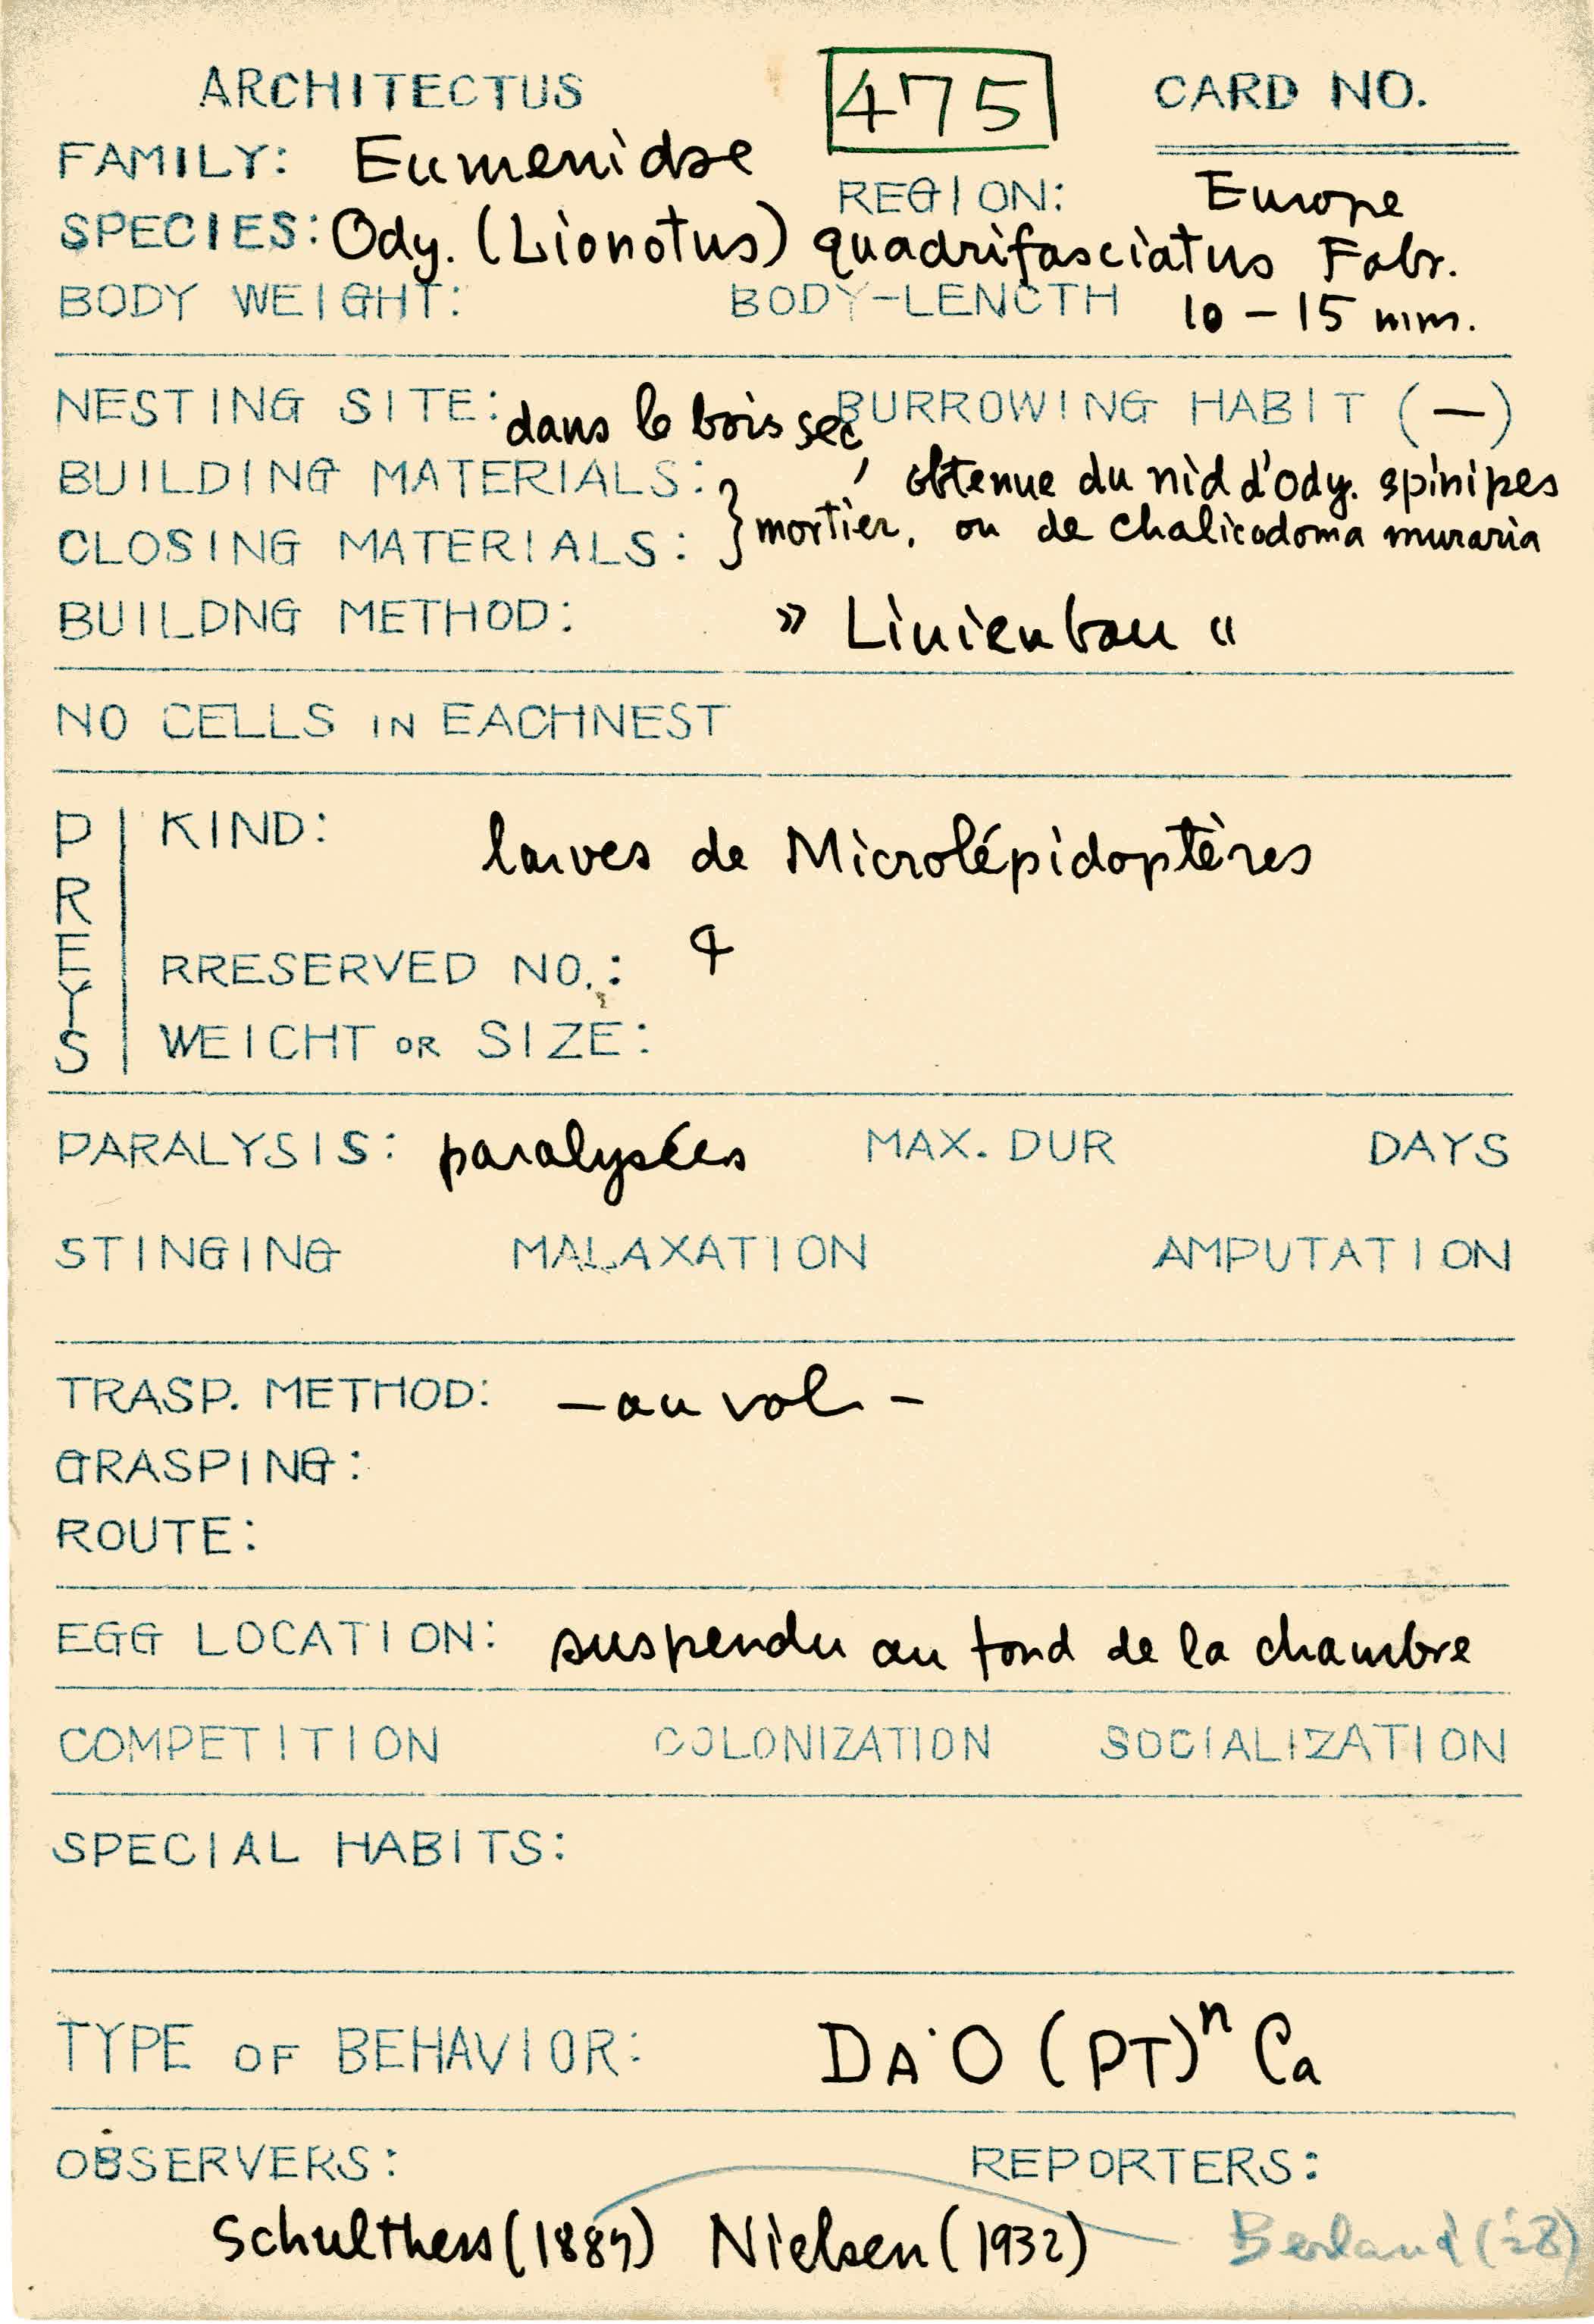 ARCHITECTUS 475 CARD NO.
FAMILY: Eumenidae
REGION: Europe
SPECIES: Ody. (Lionotus) quadrifasciatus Fabr.
BODY WEIGHT: BODY-LENGTH 10 – 15 mm.
NESTING SITE: dans le bois sec BURROWING HABIT (—)
BUILDING MATERIALS: obtenue du nid d'ody. spinipes
CLOSING MATERIALS: } mortier, ou de Chalicodoma muraria
BUILDNG METHOD: » Linienbau «
NO CELLS IN EACHNEST
PREYS
KIND: larves de Microlépidoptères
RRESERVED NO.: 4
WEICHT OR SIZE:
PARALYSIS: paralysées MAX. DUR DAYS
STINGING MALAXATION AMPUTATION
TRASP. METHOD: – au vol –
GRASPING:
ROUTE:
EGG LOCATION: suspendu au fond de la chambre
COMPETITION COLONIZATION SOCIALIZATION
SPECIAL HABITS:
TYPE OF BEHAVIOR: DA'O (PT)ⁿ Ca
OBSERVERS: REPORTERS:
Schulthess (1887) Nielsen (1932) Berland ('28)